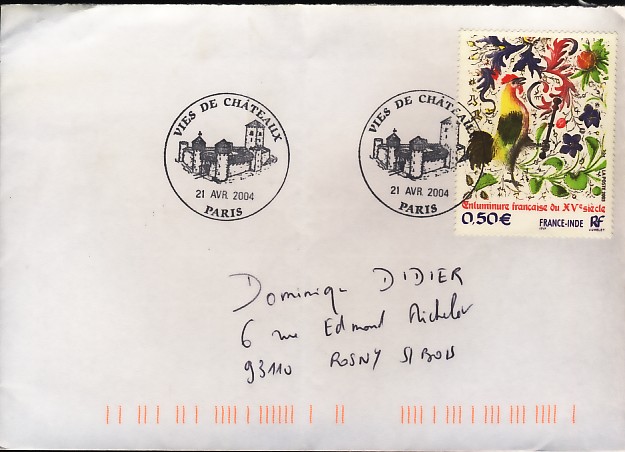 VIES DE CHÂTEAUX
21 AVR. 2004
PARIS
VIES DE CHÂTEAUX
21 AVR. 2004
PARIS
LA POSTE 2003
Enluminure française du XVe siècle
0,50€ FRANCE-INDE RF
Dominique DIDIER
6 rue Edmond Michelet
93110 ROSNY S/BOIS